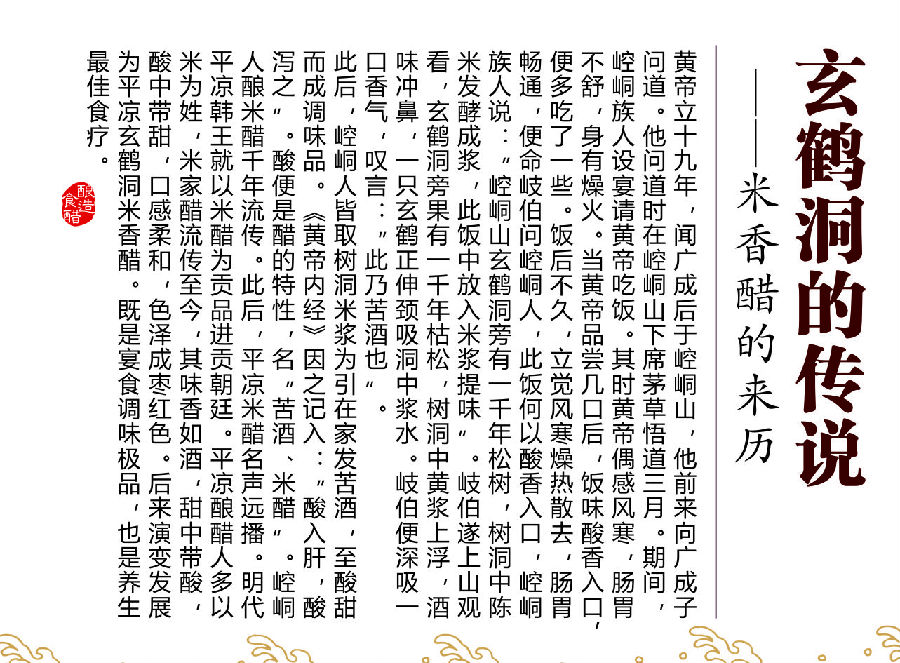 玄鹤洞的传说
——米香醋的来历
黄帝立十九年，闻广成后于崆峒山，他前来向广成子
问道。他问道时在崆峒山下席茅草悟道三月。期间，
崆峒族人设宴请黄帝吃饭。其时黄帝偶感风寒，肠胃
不舒，身有燥火。当黄帝品尝几口后，饭味酸香入口，
便多吃了一些。饭后不久，立觉风寒燥热散去，肠胃
畅通，便命岐伯问崆峒人，此饭何以酸香入口，崆峒
族人说：“崆峒山玄鹤洞旁有一千年松树，树洞中陈
米发酵成浆，此饭中放入米浆提味”。岐伯遂上山观
看，玄鹤洞旁果有一千年枯松，树洞中黄浆上浮，酒
味冲鼻，一只玄鹤正伸颈吸洞中浆水。岐伯便深吸一
口香气，叹言：“此乃苦酒也”。
此后，崆峒人皆取树洞米浆为引在家发苦酒，至酸甜
而成调味品。《黄帝内经》因之记入：“酸入肝，酸
泻之”。酸便是醋的特性，名“苦酒、米醋”。崆峒
人酿米醋千年流传。此后，平凉米醋名声远播。明代
平凉韩王就以米醋为贡品进贡朝廷。平凉酿醋人多以
米为姓，米家醋流传至今，其味香如酒，甜中带酸，
酸中带甜，口感柔和，色泽成枣红色。后来演变发展
为平凉玄鹤洞米香醋。既是宴食调味极品，也是养生
最佳食疗。
酿造
食醋